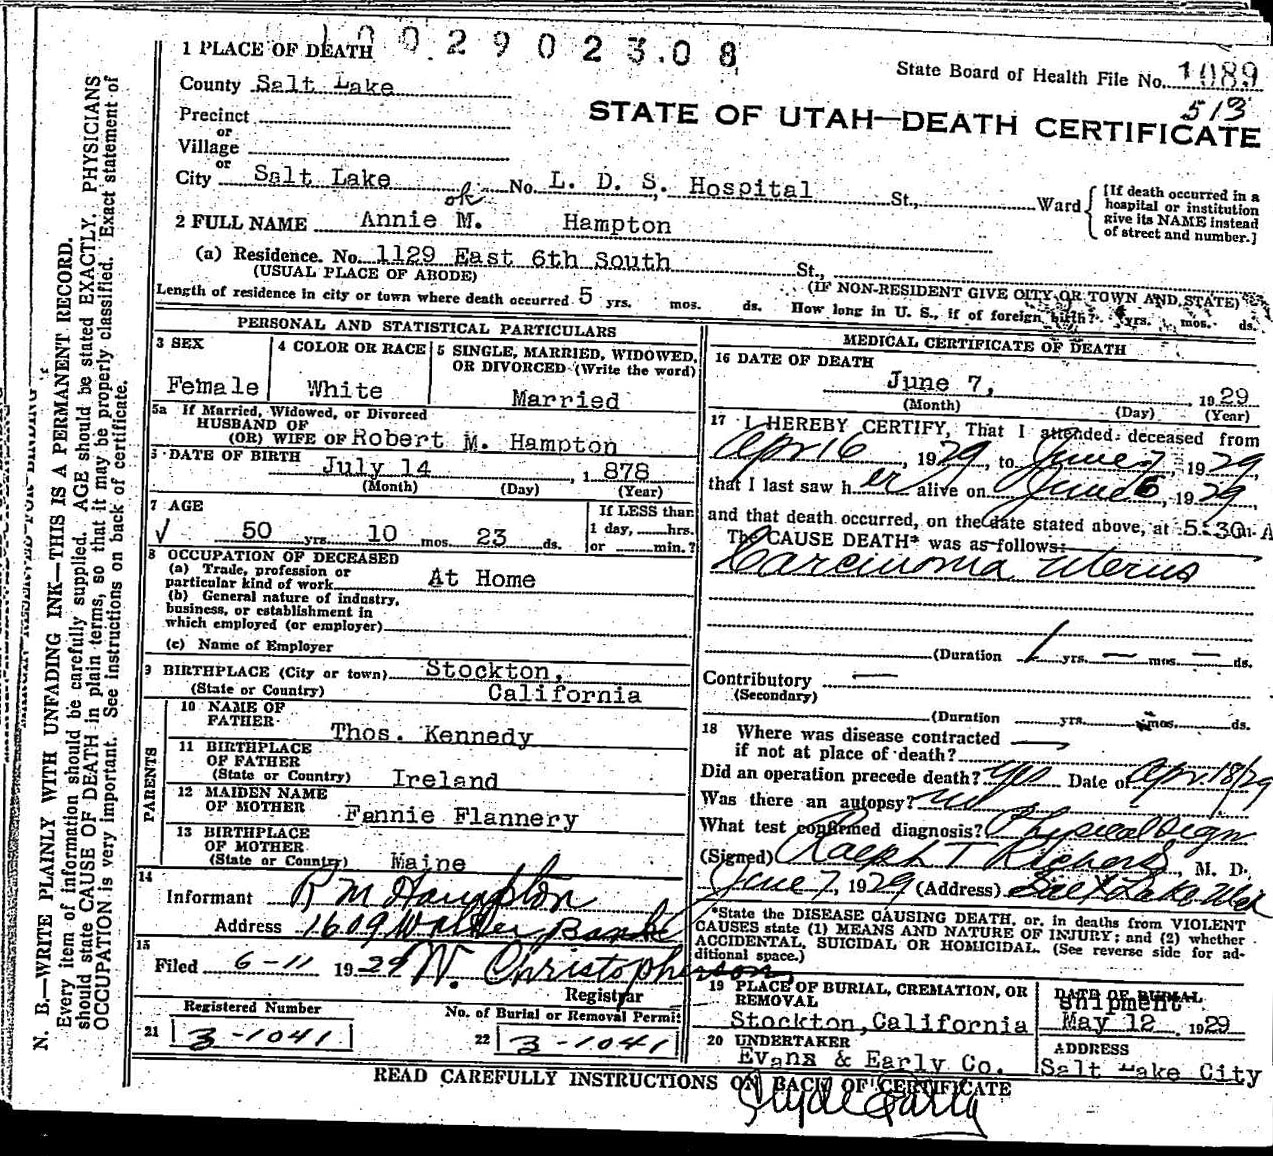 1 0 0 2 9 0 2 3 0 8
1 PLACE OF DEATH
State Board of Health File No. 1089
County Salt Lake
513
STATE OF UTAH—DEATH CERTIFICATE
Precinct
or
Village
or
City Salt Lake No. L. D. S. Hospital St., Ward
[If death occurred in a hospital or institution give its NAME instead of street and number.]
ok
2 FULL NAME Annie M. Hampton
(a) Residence. No. 1129 East 6th South St.,
(USUAL PLACE OF ABODE) (IF NON-RESIDENT GIVE CITY OR TOWN AND STATE)
Length of residence in city or town where death occurred 5 yrs. mos. ds. How long in U. S., if of foreign birth? yrs. mos. ds.
PERSONAL AND STATISTICAL PARTICULARS
3 SEX 4 COLOR OR RACE 5 SINGLE, MARRIED, WIDOWED, OR DIVORCED (Write the word)
Female White Married
5a If Married, Widowed, or Divorced
HUSBAND OF
(OR) WIFE OF Robert M. Hampton
6 DATE OF BIRTH July 14, 1878
(Month) (Day) (Year)
7 AGE If LESS than
√ 50 yrs. 10 mos. 23 ds. 1 day, hrs.
or min.?
8 OCCUPATION OF DECEASED
(a) Trade, profession or
particular kind of work At Home
(b) General nature of industry,
business, or establishment in
which employed (or employer)
(c) Name of Employer
9 BIRTHPLACE (City or town) Stockton,
(State or Country) California
PARENTS
10 NAME OF
FATHER Thos. Kennedy
11 BIRTHPLACE
OF FATHER
(State or Country) Ireland
12 MAIDEN NAME
OF MOTHER Fannie Flannery
13 BIRTHPLACE
OF MOTHER
(State or Country) Maine
14
Informant R M Hampton
Address 1609 Walker Bank
15
Filed 6-11 1929 W. Christopherson
Registrar
Registered Number No. of Burial or Removal Permit
21 3-1041 22 3-1041
MEDICAL CERTIFICATE OF DEATH
16 DATE OF DEATH
June 7, 1929
(Month) (Day) (Year)
17 I HEREBY CERTIFY, That I attended deceased from
Apr 16, 1929, to June 7, 1929
that I last saw h er alive on June 6, 1929,
and that death occurred, on the date stated above, at 5:30 m. A
The CAUSE DEATH* was as follows:
Carcinoma Uterus
(Duration 1 yrs. — mos. — ds.
Contributory —
(Secondary)
(Duration yrs. mos. ds.
18 Where was disease contracted
if not at place of death? —
Did an operation precede death? yes Date of Apr. 18/29
Was there an autopsy? no
What test confirmed diagnosis? Physical Sign
(Signed) Ralph T Richards, M. D.
June 7, 1929 (Address) Salt Lake
*State the DISEASE CAUSING DEATH, or, in deaths from VIOLENT
CAUSES state (1) MEANS AND NATURE OF INJURY; and (2) whether
ACCIDENTAL, SUICIDAL OR HOMICIDAL. (See reverse side for ad-
ditional space.)
19 PLACE OF BURIAL, CREMATION, OR REMOVAL
Stockton, California
DATE OF BURIAL
Shipment
May 12 1929
20 UNDERTAKER ADDRESS
Evans & Early Co. Salt Lake City
READ CAREFULLY INSTRUCTIONS ON BACK OF CERTIFICATE
Clyde Early
N. B.—WRITE PLAINLY WITH UNFADING INK—THIS IS A PERMANENT RECORD.
Every item of information should be carefully supplied. AGE should be stated EXACTLY. PHYSICIANS
should state CAUSE OF DEATH in plain terms, so that it may be properly classified. Exact statement of
OCCUPATION is very important. See instructions on back of certificate.